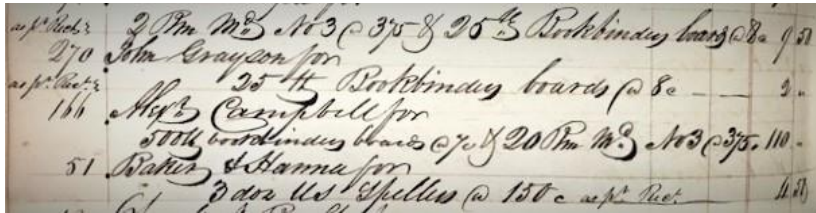 as pr Rect & 2 Rm Md No 3 @ 375 & 25 lb Bookbinders boards @ 8c 9 50
270 John Grayson for
as pr Rect & 25 lb Bookbinders boards @ 8c — — 2 "
166 Alexr Campbell for
500 lb bookbinders boards @ 7c & 20 Rm Md No 3 @ 375 110 "
51 Baker & Hanna for
3 doz US Spellers @ 150c as pr Rect 4 50